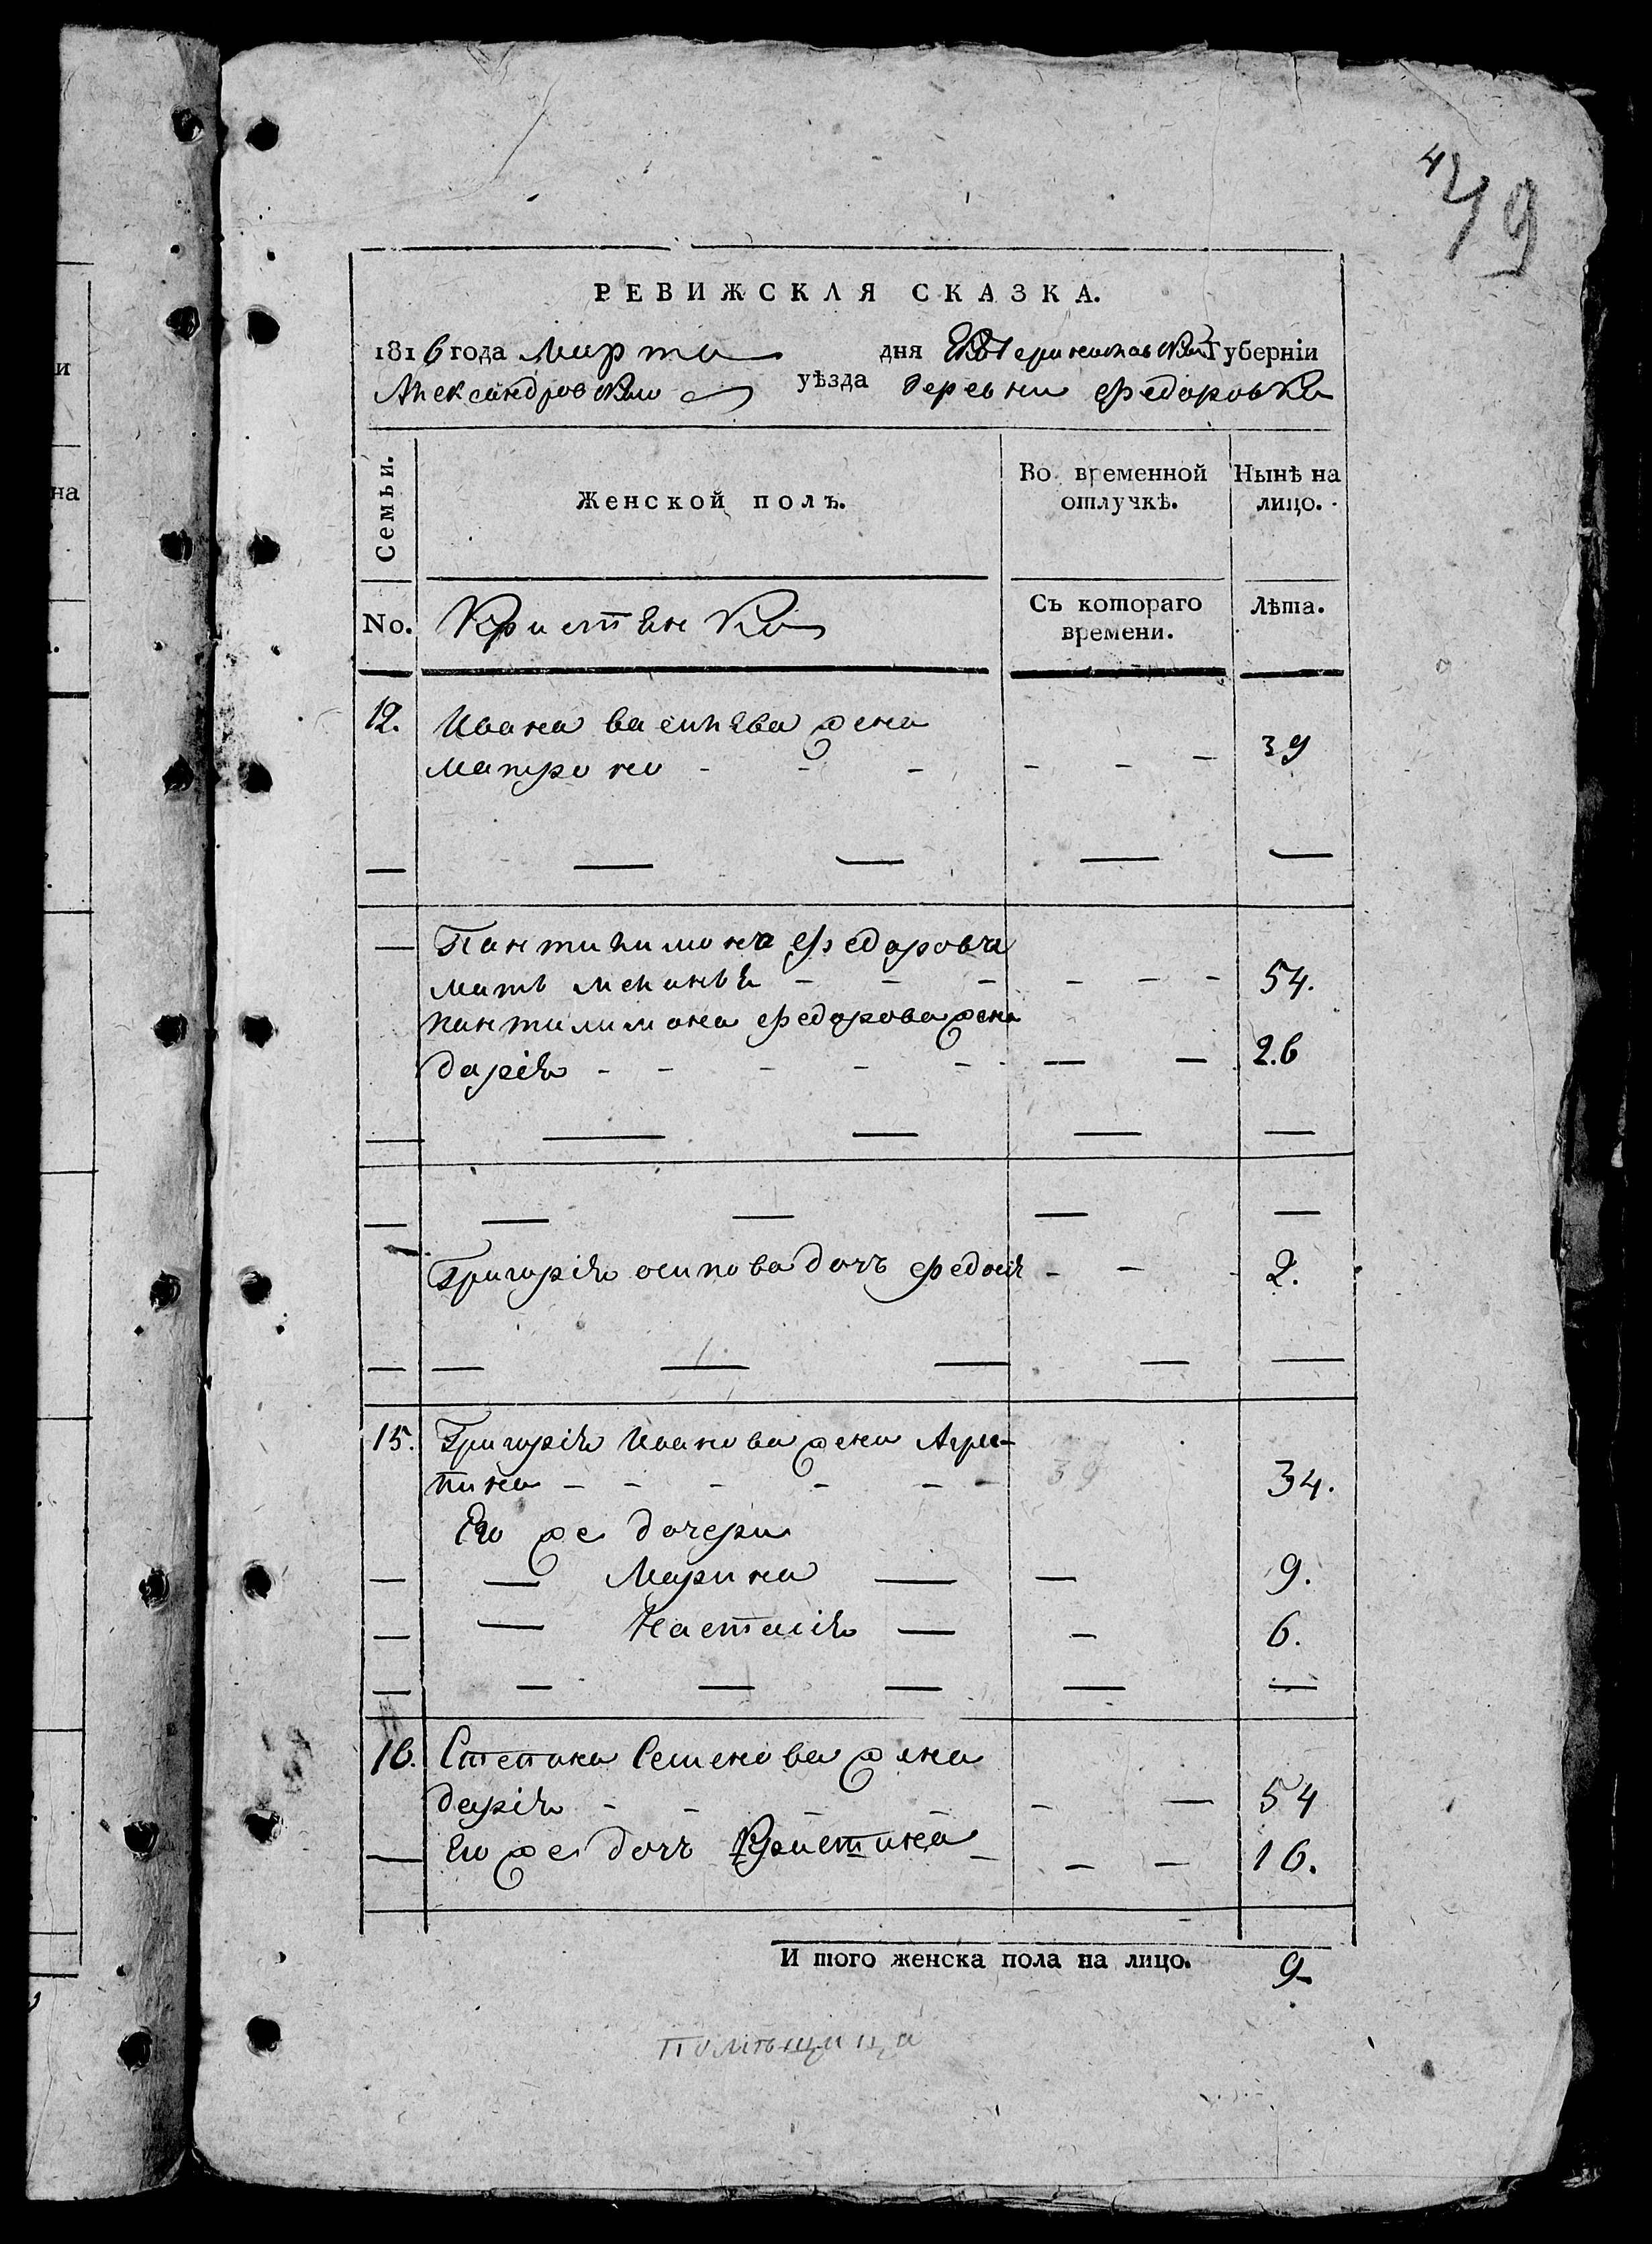 49
РЕВИЖСКАЯ СКАЗКА.
1816 года Марта дня Екатеринославской Губерніи
Александровскаго уѣзда деревни Федоровки
Семьи.
Женской полъ.
Во временной отлучкѣ.
Нынѣ на лицо.
No.
Съ котораго времени.
Лѣта.
12. Ивана василева жена
матрона - - - - - - 39
— — — — —
— Пантилимона федорова
мать меланья - - - - - - 54.
пантилимона федорова жена
дарія - - - - - — — 26
— — — — —
— — — — —
Григорія осипова дочь федосія - - - 2.
— — — — — —
15. Григорія Иванова жена Агри-
пина - - - - - - 34.
Его же дочери
— — Марина — — 9.
— — Настасія — - 6.
— — — — — —
16. Степана Семенова жена
дарія - - - - - — 54
— Его же дочь Кристина - - — 16.
И того женска пола на лицо. 9
помѣщица